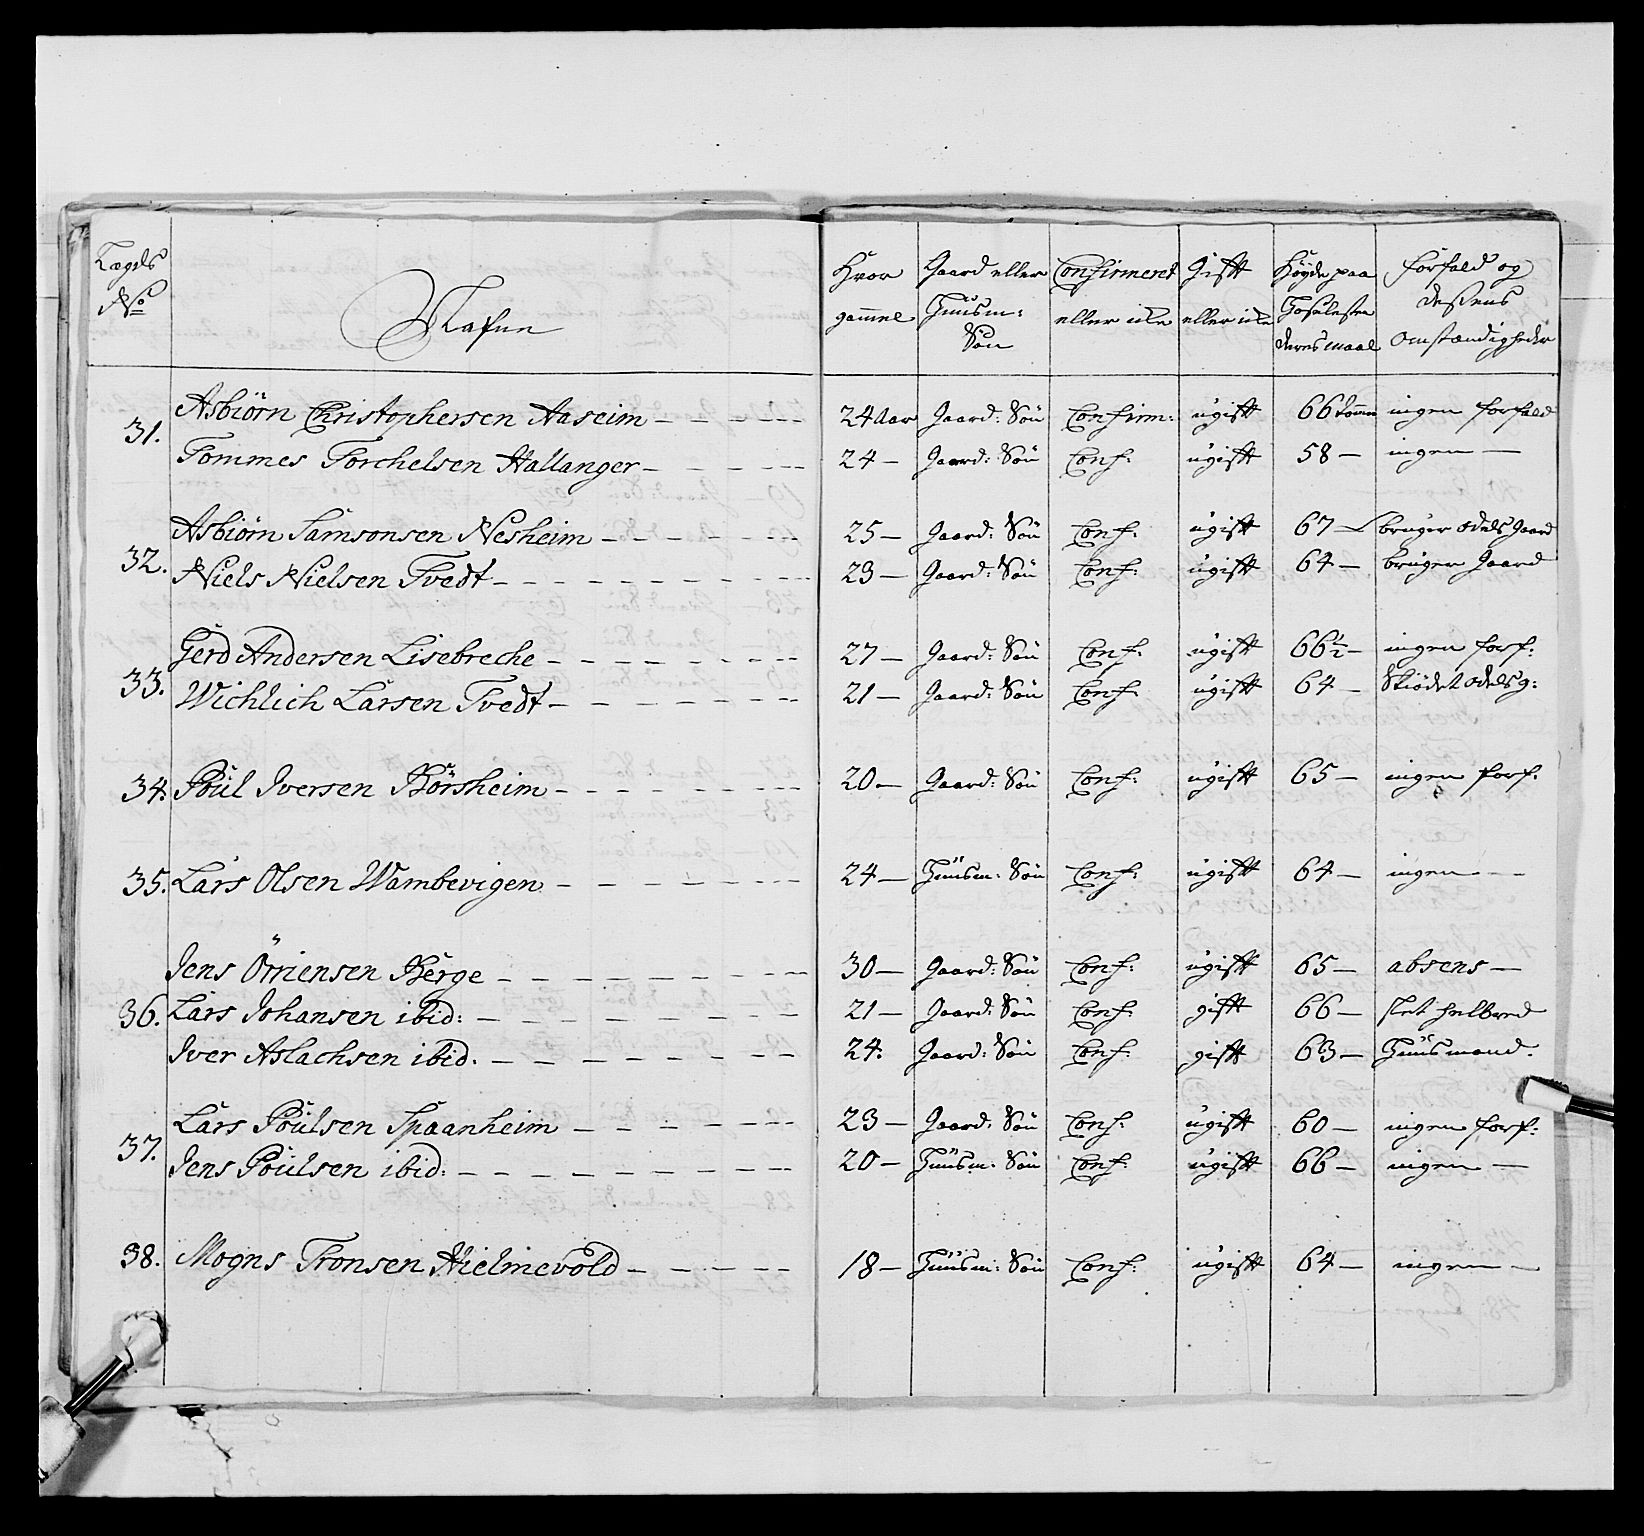 Lægds No | Nafne | Hvor gammel | Gaard eller Huusm: Søn | Confirmeret eller icke | Gift eller icke | Høyde paa Hoselesten deres maal | Forfald og dessens omstændigheder
31. Asbiørn Christophersen Aaseim — 24 Aar Gaard: Søn Confirm: ugift 66 Tomm ingen forfald
Tommes Torchelsen Hallanger — 24 — Gaard: Søn Conf: ugift 58 — ingen —
32. Asbiørn Samsonsen Nesheim — 25 — Gaard: Søn Conf: ugift 67 — bruger odels Gaard
Niels Nielsen Tvedt — 23 — Gaard: Søn Conf: ugift 64 — bruger Gaard
33. Gerd Andersen Lisebreche — 27 — Gaard: Søn Conf: ugift 66½ — ingen forf:
Wichlich Larsen Tvedt — 21 — Gaard: Søn Conf: ugift 64 — Skiødet odelsg:
34. Poul Iversen Børsheim — 20 — Gaard: Søn Conf: ugift 65 — ingen forf:
35. Lars Olsen Wambevigen — 24 — Huusm: Søn Conf: ugift 64 — ingen —
Jens Ørriensen Berge — 30 — Gaard: Søn Conf: ugift 65 — absens —
36. Lars Johansen ibid: — 21 — Gaard: Søn Conf: gift 66 — slet helbred
Iver Aslachsen ibid. — 24. Gaard: Søn Conf: gift 63 — Huusmand.
37. Lars Poulsen Spaanheim — 23 — Gaard: Søn Conf: ugift 60 — ingen forf:
Jens Poulsen ibid: — 20 — Huusm: Søn Conf: ugift 66 — ingen —
38. Mogns Tronsen Hielmevold — 18 — Huusm: Søn Conf: ugift 64 — ingen —